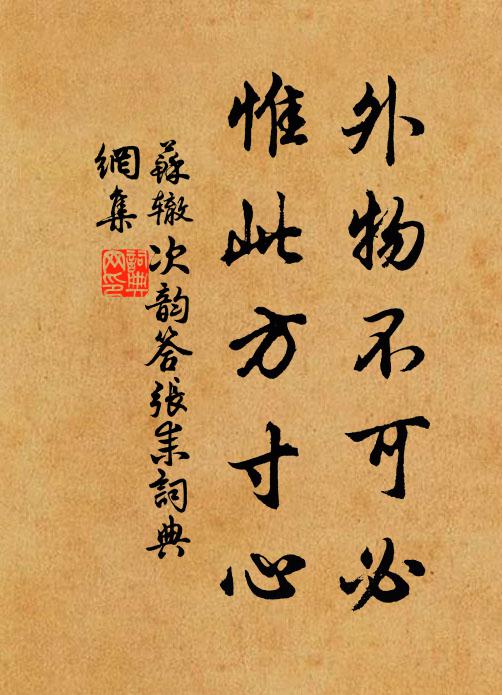 外物不可必
惟此方寸心
蘇辙次韵答張耒詞典
網集
詞典
网印